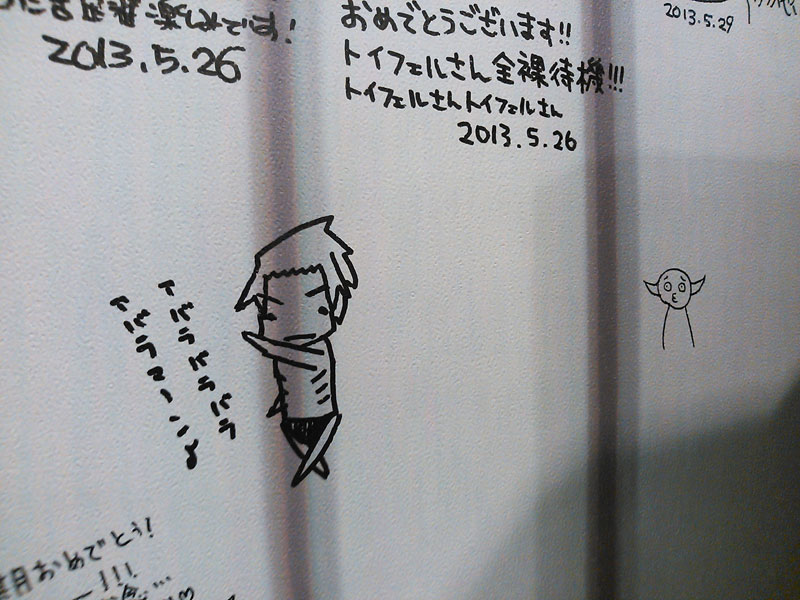 楽しみです!
2013.5.26
おめでとうございます!!
トイフェルさん全裸待機!!!
トイフェルさんトイフェルさん
2013.5.26
2013.5.29
バラバラバラ
バラマ
月おめでとう!
ー!!!